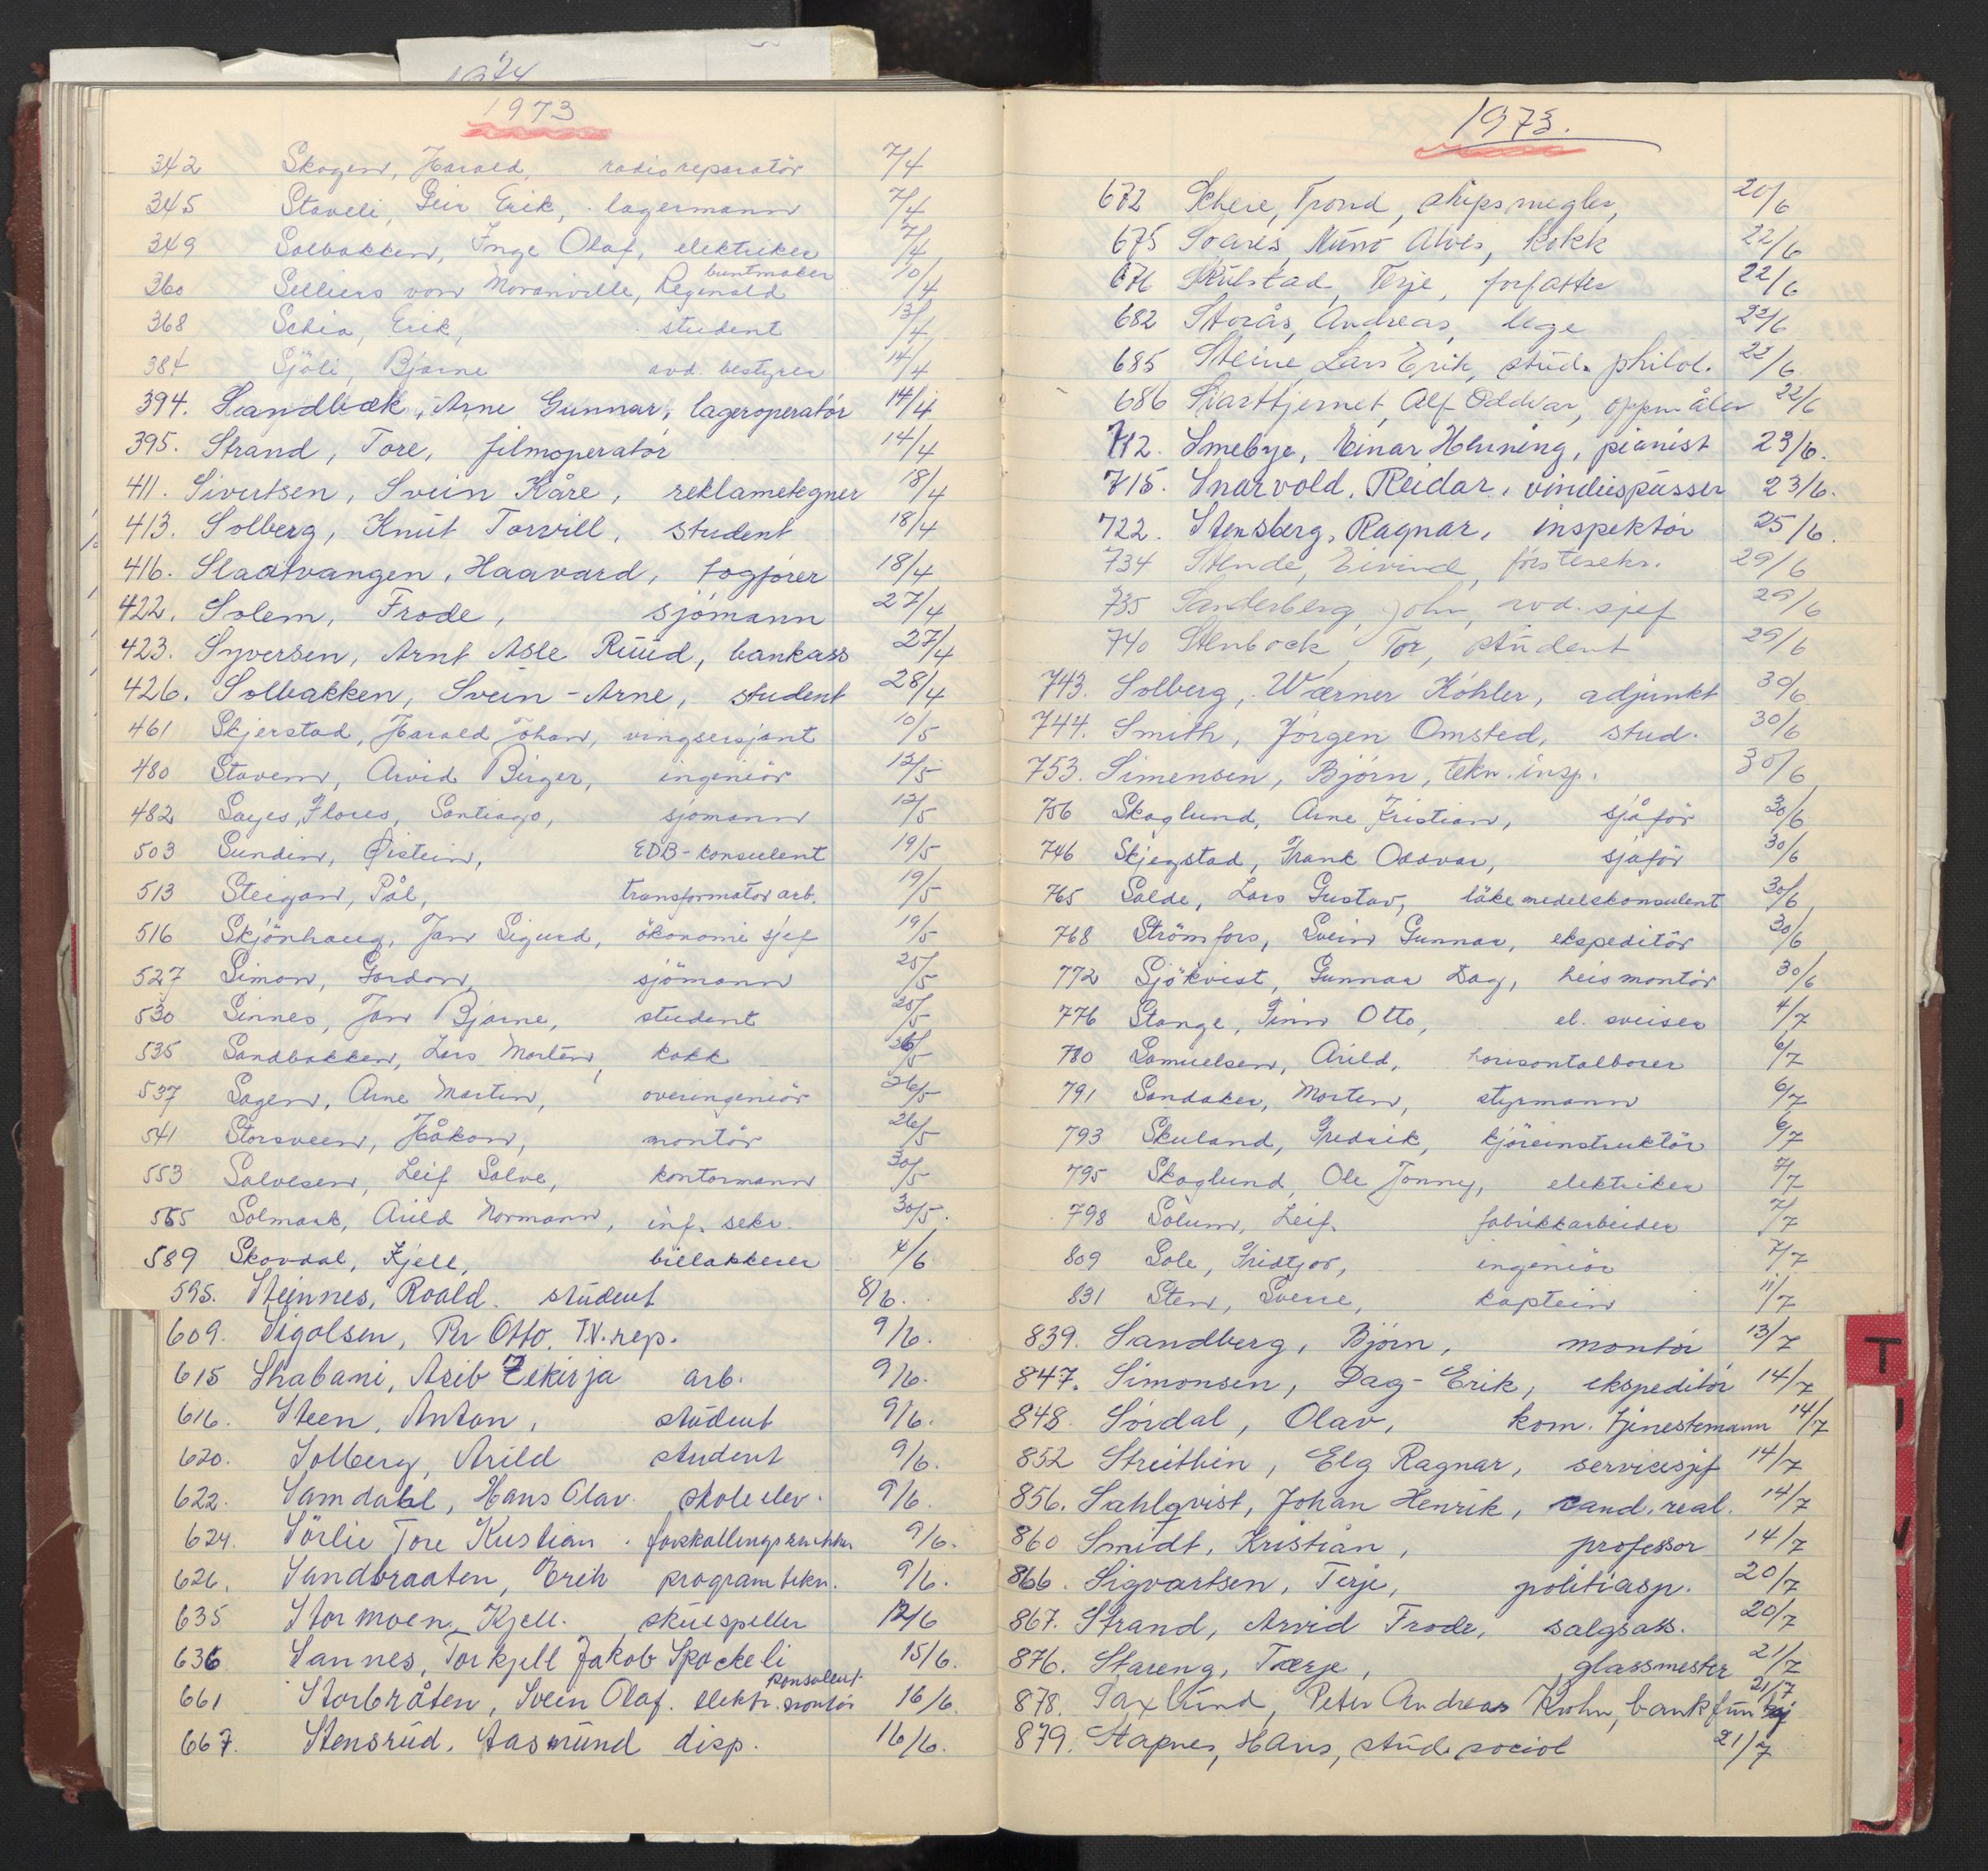 1974
1973
342 Skogen, Harald, radioreparatör 7/4
345 Staveli, Geir Erik, lagermann 7/4
349 Solbakken, Inge Olaf, elektriker 7/4
buntmaker
360 Selliers von Moranville, Reginald 10/4
368 Schia, Erik, student 13/4
384 Sjöli, Bjarne avd. bestyrer 14/4
394. Sandbæk, Arne Gunnar, lageroperatör 14/4
395. Strand, Tore, filmoperatör 14/4
411. Sivertsen, Svein Kåre, reklametegner 18/4
413. Solberg, Knut Torvill, student 18/4
416. Slaatvangen, Haavard, togfører 18/4
422. Solem, Frode, sjömann 27/4
423. Syversen, Arnt Asle Ruud, bankass 27/4
426. Solbakken, Svein-Arne, student 28/4
461 Skjerstad, Harald Johan, vingsersjant 10/5
480 Staven, Arvid Birger, ingeniör 12/5
482 Sayes, Flores, Santiago, sjömann 12/5
503 Sundin, Øistein, EDB-konsulent 19/5
513 Steigan, Pål, transformatorarb. 19/5
516 Skjönhaug, Jan Sigurd, ökonomi sjef 19/5
527 Simon, Gordon, sjömann 25/5
530 Sinnes, Jan Bjarne, student 25/5
535 Sandbakken, Lars Morten, kokk 26/5
537 Sagen, Arne Martin, overingeniör 26/5
541 Storsveen, Håkon, montör 26/5
553 Salvesen, Leif Salve, kontormann 30/5
565 Solmark, Arild Normann, inf. sekr. 30/5.
589 Skovdal, Kjell, billakkerer 4/6
595. Steinnes, Roald. student 8/6.
609. Sigolsen, Per Otto. T.V. rep. 9/6.
615 Shabani, Asib Zekirja arb. 9/6.
616. Steen, Anton, student 9/6.
620. Solberg, Arild student 9/6.
622. Samdahl, Hans Olav. skoleelev. 9/6.
624. Sörlie Tore Kristian. 9/6.
626. Sandbraaten, Erik programtekn. 9/6.
635 Stormoen, Kjell. skuespiller 12/6
636 Sannes, Torkjell Jakob Spockeli 15/6.
konsulent
661 Storbråten, Svein Olaf. elektr. montör 16/6.
667. Stensrud, Aasmund disp. 16/6.
1973.
672 Scheie, Trond, skipsmegler, 20/6
675 Soares, Nuno Alves, kokk 22/6
676 Skulstad, Terje, forfatter 22/6
682 Storås, Andreas, lege 22/6
685 Steine Lars Erik, stud. philol. 22/6
686 Svarttjernet, Alf Oddvar, oppmåler 22/6
712. Smebye, Einar Henning, pianist 23/6.
715. Snarvold, Reidar, vinduspusser 23/6.
722. Stensberg, Ragnar, inspektør 25/6.
734 Stende, Eivind, förstesekr. 29/6
735 Sanderberg, John, avd. sjef 29/6
740 Stenbock, Tor, student 29/6
743. Solberg, Wærner Köhler, adjunkt 30/6
744. Smith, Jörgen Omsted, stud. 30/6
753. Simensen, Björn, tekn. insp. 30/6
756 Skoglund, Arne Kristian, sjåför 30/6
746 Skjegstad, Frank Oddvar, sjåför 30/6
765 Salde, Lars Gustav, läkemedelskonsulent 30/6
768 Strömfors, Svein Gunnar, ekspeditör 30/6
772 Sjökvist, Gunnar Dag, heismontör 30/6
776 Stange, Finn Otto, el. sveiser 4/7
780 Samuelsen, Arild, horisontalborer 6/7
791 Sandaker, Morten, styrmann 6/7
793 Skuland, Fredrik, kjöreinstruktör 6/7
795 Skoglund, Ole Jonny, elektriker 7/7
798 Solum, Leif, fabrikkarbeider 7/7
809 Sole, Fridtjov, ingeniör 7/7
831 Sten, Sverre, kaptein 11/7
839. Sandberg, Björn, montör 13/7
847. Simonsen, Dag-Erik, ekspeditör 14/7
848. Sördal, Olav, kom. tjenestemann 14/7
852 Streithin, Elg Ragnar, servicesjef 14/7
856. Sahlqvist, Johan Henrik, cand. real. 14/7
860 Smidt, Kristian, professor 14/7
866. Sigvartsen, Terje, politiasp. 20/7
867. Strand, Arvid Frode, salgsass. 20/7
876. Stareng, Tærje, glassmester 21/7
878. Saxlund, Peter Andreas Krohn, bankfunksj 21/7
879. Stapnes, Hans, stud. sociol 21/7
T